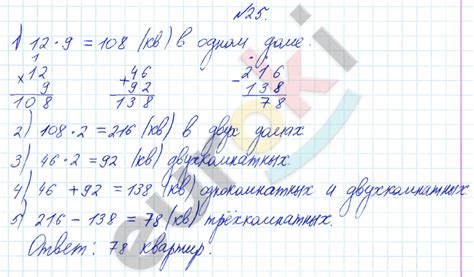 №25.
1) 12 · 9 = 108 (кв) в одном доме.
1
×12 +46 -216
9 92 138
108 138 78
2) 108 · 2 = 216 (кв) в двух домах
3) 46 · 2 = 92 (кв) двухкомнатных
4) 46 + 92 = 138 (кв) однокомнатных и двухкомнатных
5) 216 - 138 = 78 (кв) трёхкомнатных.
Ответ: 78 квартир.
euroki